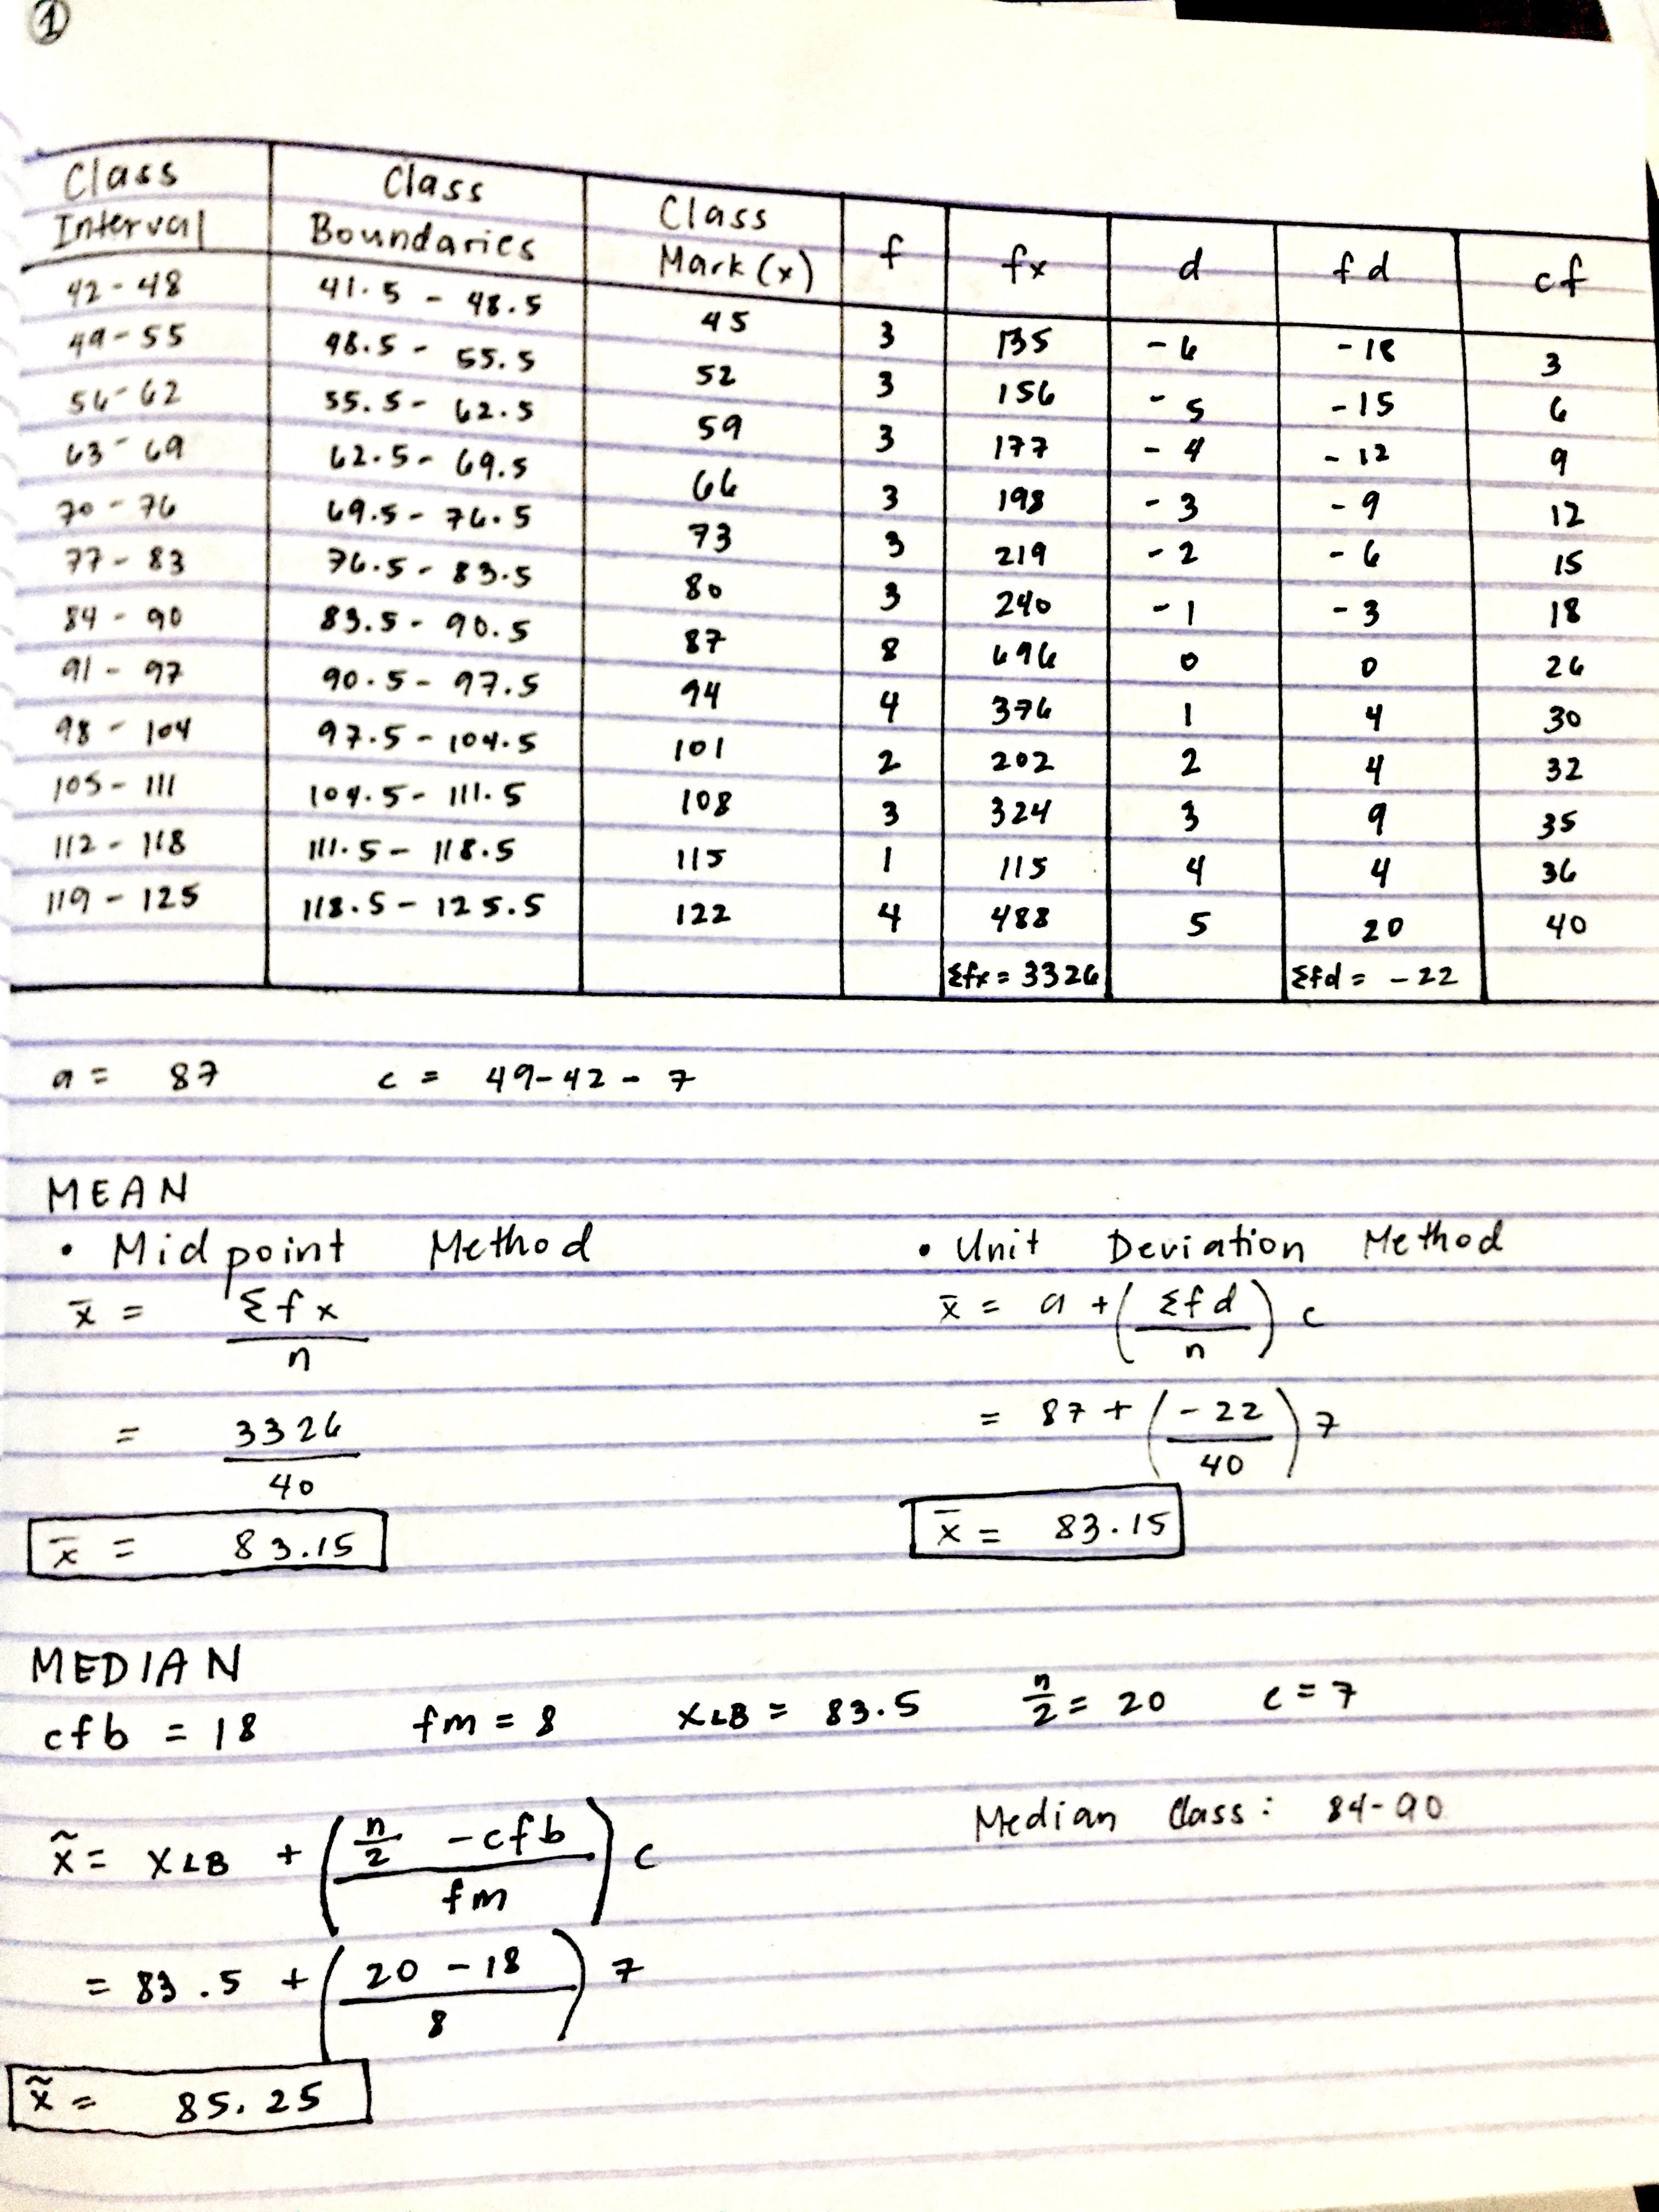 1
Class Interval | Class Boundaries | Class Mark (x) | f | fx | d | fd | cf
42 - 48 | 41.5 - 48.5 | 45 | 3 | 135 | -6 | -18 | 3
49 - 55 | 48.5 - 55.5 | 52 | 3 | 156 | -5 | -15 | 6
56 - 62 | 55.5 - 62.5 | 59 | 3 | 177 | -4 | -12 | 9
63 - 69 | 62.5 - 69.5 | 66 | 3 | 198 | -3 | -9 | 12
70 - 76 | 69.5 - 76.5 | 73 | 3 | 219 | -2 | -6 | 15
77 - 83 | 76.5 - 83.5 | 80 | 3 | 240 | -1 | -3 | 18
84 - 90 | 83.5 - 90.5 | 87 | 8 | 696 | 0 | 0 | 26
91 - 97 | 90.5 - 97.5 | 94 | 4 | 376 | 1 | 4 | 30
98 - 104 | 97.5 - 104.5 | 101 | 2 | 202 | 2 | 4 | 32
105 - 111 | 104.5 - 111.5 | 108 | 3 | 324 | 3 | 9 | 35
112 - 118 | 111.5 - 118.5 | 115 | 1 | 115 | 4 | 4 | 36
119 - 125 | 118.5 - 125.5 | 122 | 4 | 488 | 5 | 20 | 40
Σfx = 3326 | Σfd = -22
a = 87 c = 49-42 - 7
MEAN
• Midpoint Method
x̄ = Σfx / n
= 3326 / 40
x̄ = 83.15
• Unit Deviation Method
x̄ = a + (Σfd / n) c
= 87 + (-22 / 40) 7
x̄ = 83.15
MEDIAN
cfb = 18 fm = 8 XLB = 83.5 n/2 = 20 c = 7
Median Class: 84-90
x̃ = XLB + (n/2 - cfb / fm) c
= 83.5 + (20 - 18 / 8) 7
x̃ = 85.25